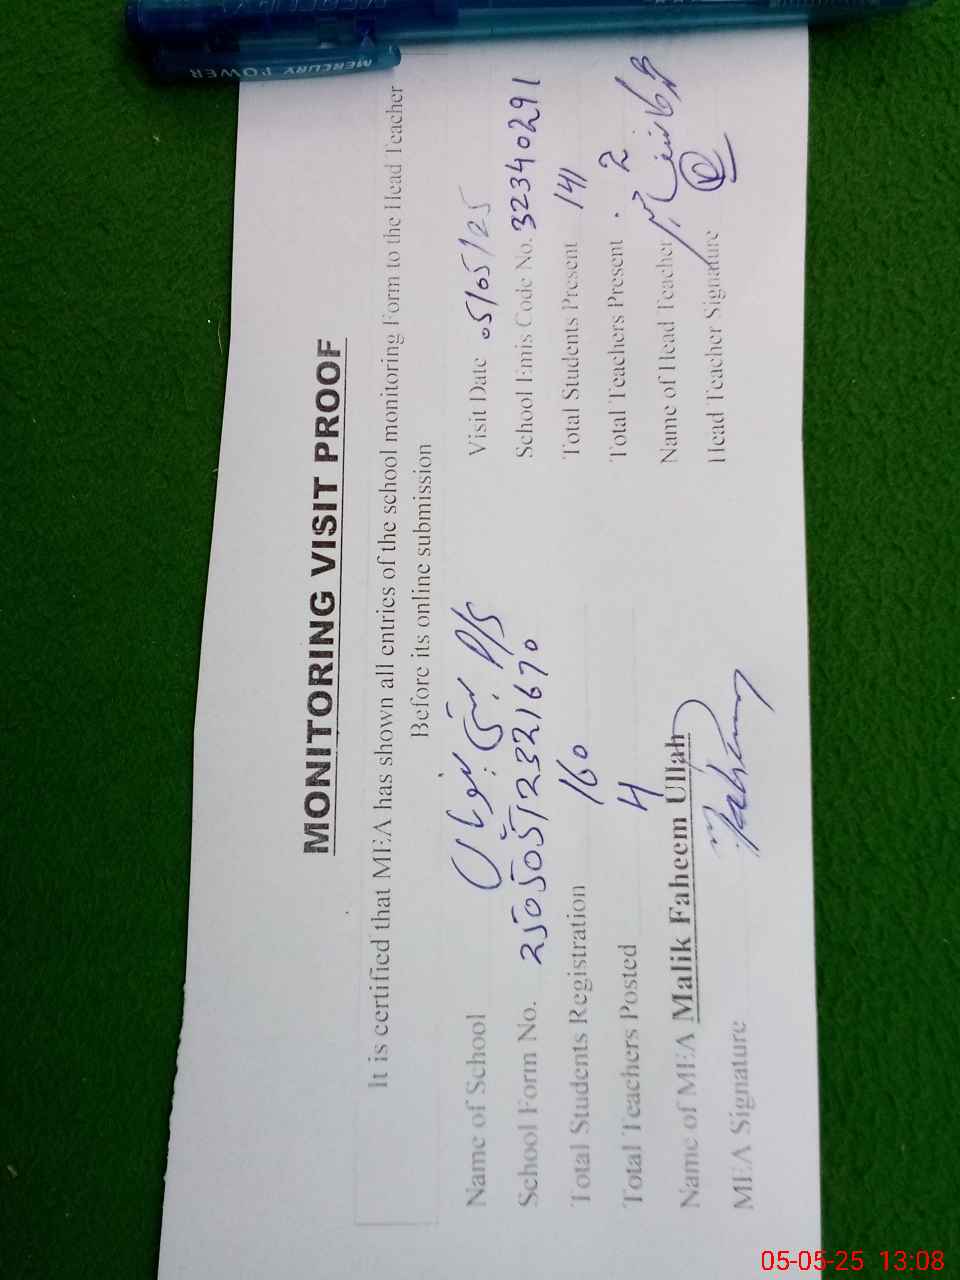 MERCURY POWER
MONITORING VISIT PROOF
It is certified that MEA has shown all entries of the school monitoring Form to the Head Teacher
Before its online submission
Name of School P/S
Visit Date 05/05/25
School Form No. 25050512321670
School Emis Code No. 32340291
Total Students Registration 160
Total Students Present 141
Total Teachers Posted 4
Total Teachers Present . 2
Name of MEA Malik Faheem Ullah
Name of Head Teacher
MEA Signature Faheem
Head Teacher Signature
05-05-25 13:08